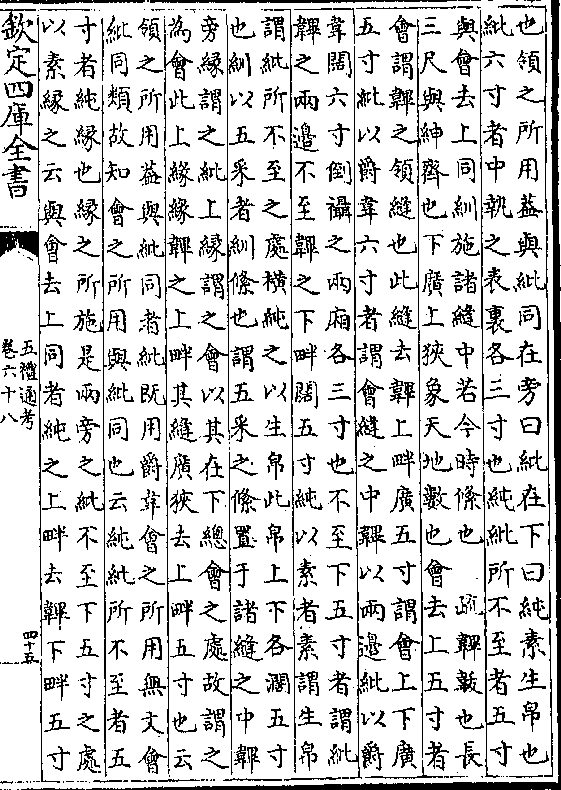 也領之所用蓋與紕同在旁曰紕在下曰純素生帛也
紕六寸者中執之表裏各三寸也純紕所不至者五寸
與會去上同紃施諸縫中若今時絛也 疏韠韍也長
三尺與紳齊也下廣上狹象天地數也會去上五寸者
會謂韠之領縫也此縫去韠上畔廣五寸謂會上下廣
五寸紕以爵韋六寸者謂會縫之中韠以兩邊紕以爵
韋闊六寸倒攝之兩廂各三寸也不至下五寸者謂紕
韠之兩邉不至韠之下畔闊五寸純以素者素謂生帛
謂紕所不至之處横純之以生帛此帛上下各濶五寸
也紃以五采者紃絛也謂五采之絛置于諸縫之中韠
旁緣謂之紕上緣謂之會以其在下總會之處故謂之
為會此上緣緣韠之上畔其縫廣狹去上畔五寸也云
領之所用蓋與紕同者紕既用爵韋會之所用無文會
紕同類故知會之所用與紕同也云純紕所不至者五
寸者純緣也緣之所施是兩旁之紕不至下五寸之處
以素緣之云與會去上同者純之上畔去韠下畔五寸
欽定四庫全書
五禮通考
卷六十八
四十五